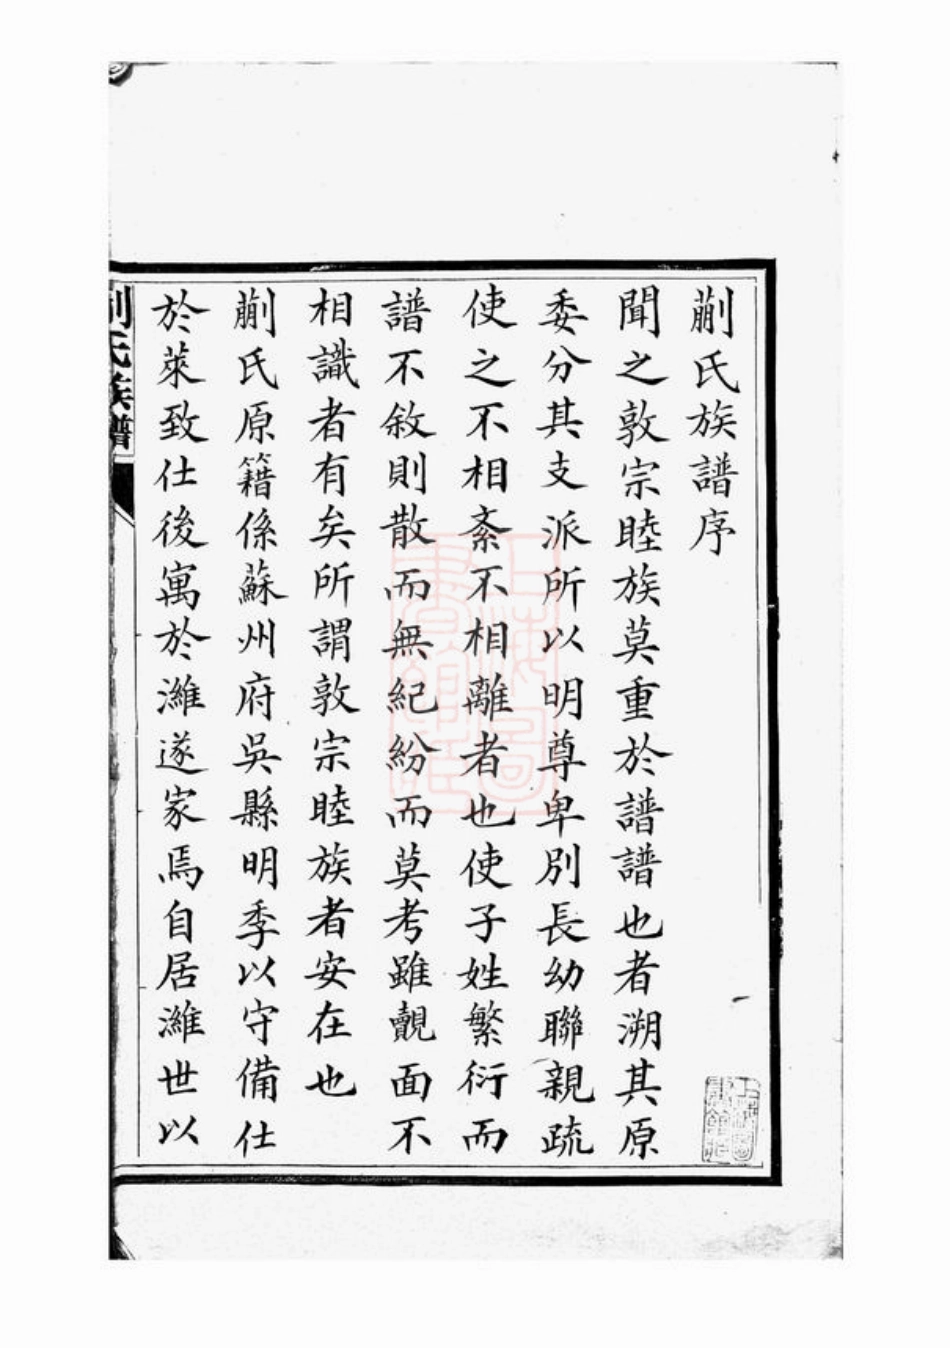 蒯氏族譜序
聞之敦宗睦族莫重於譜譜也者溯其原
委分其支派所以明尊卑別長幼聯親疏
使之不相紊不相離者也使子姓繁衍而
譜不敘則散而無紀紛而莫考雖覿面不
相識者有矣所謂敦宗睦族者安在也
蒯氏原籍係蘇州府吳縣明季以守備仕
於萊致仕後寓於濰遂家焉自居濰世以
蒯氏族譜
上海圖書館藏
上海圖書館藏